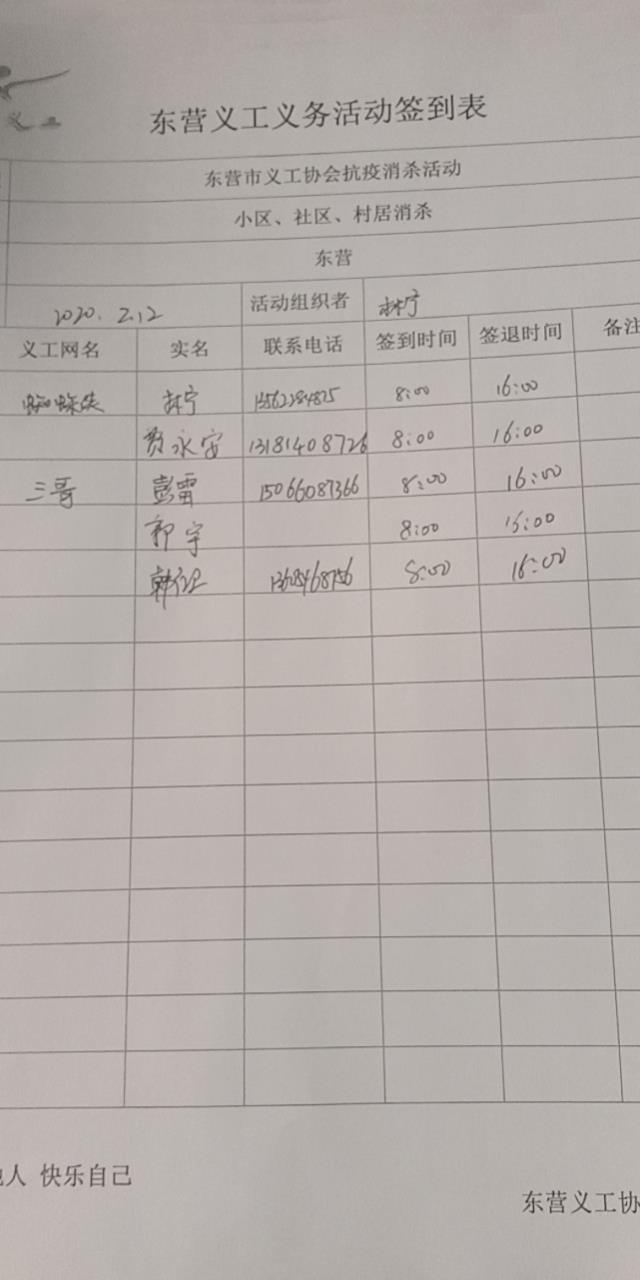 义工
东营义工义务活动签到表
东营市义工协会抗疫消杀活动
小区、社区、村居消杀
东营
2020. 2.12 活动组织者 林宁
义工网名 实名 联系电话 签到时间 签退时间 备注
林宁 8:00 16:00
贾永安 13181408726 8:00 16:00
三哥 彭雷 15066087366 8:00 16:00
郭宇 8:00 16:00
韩 8:00 16:00
他人 快乐自己
东营义工协